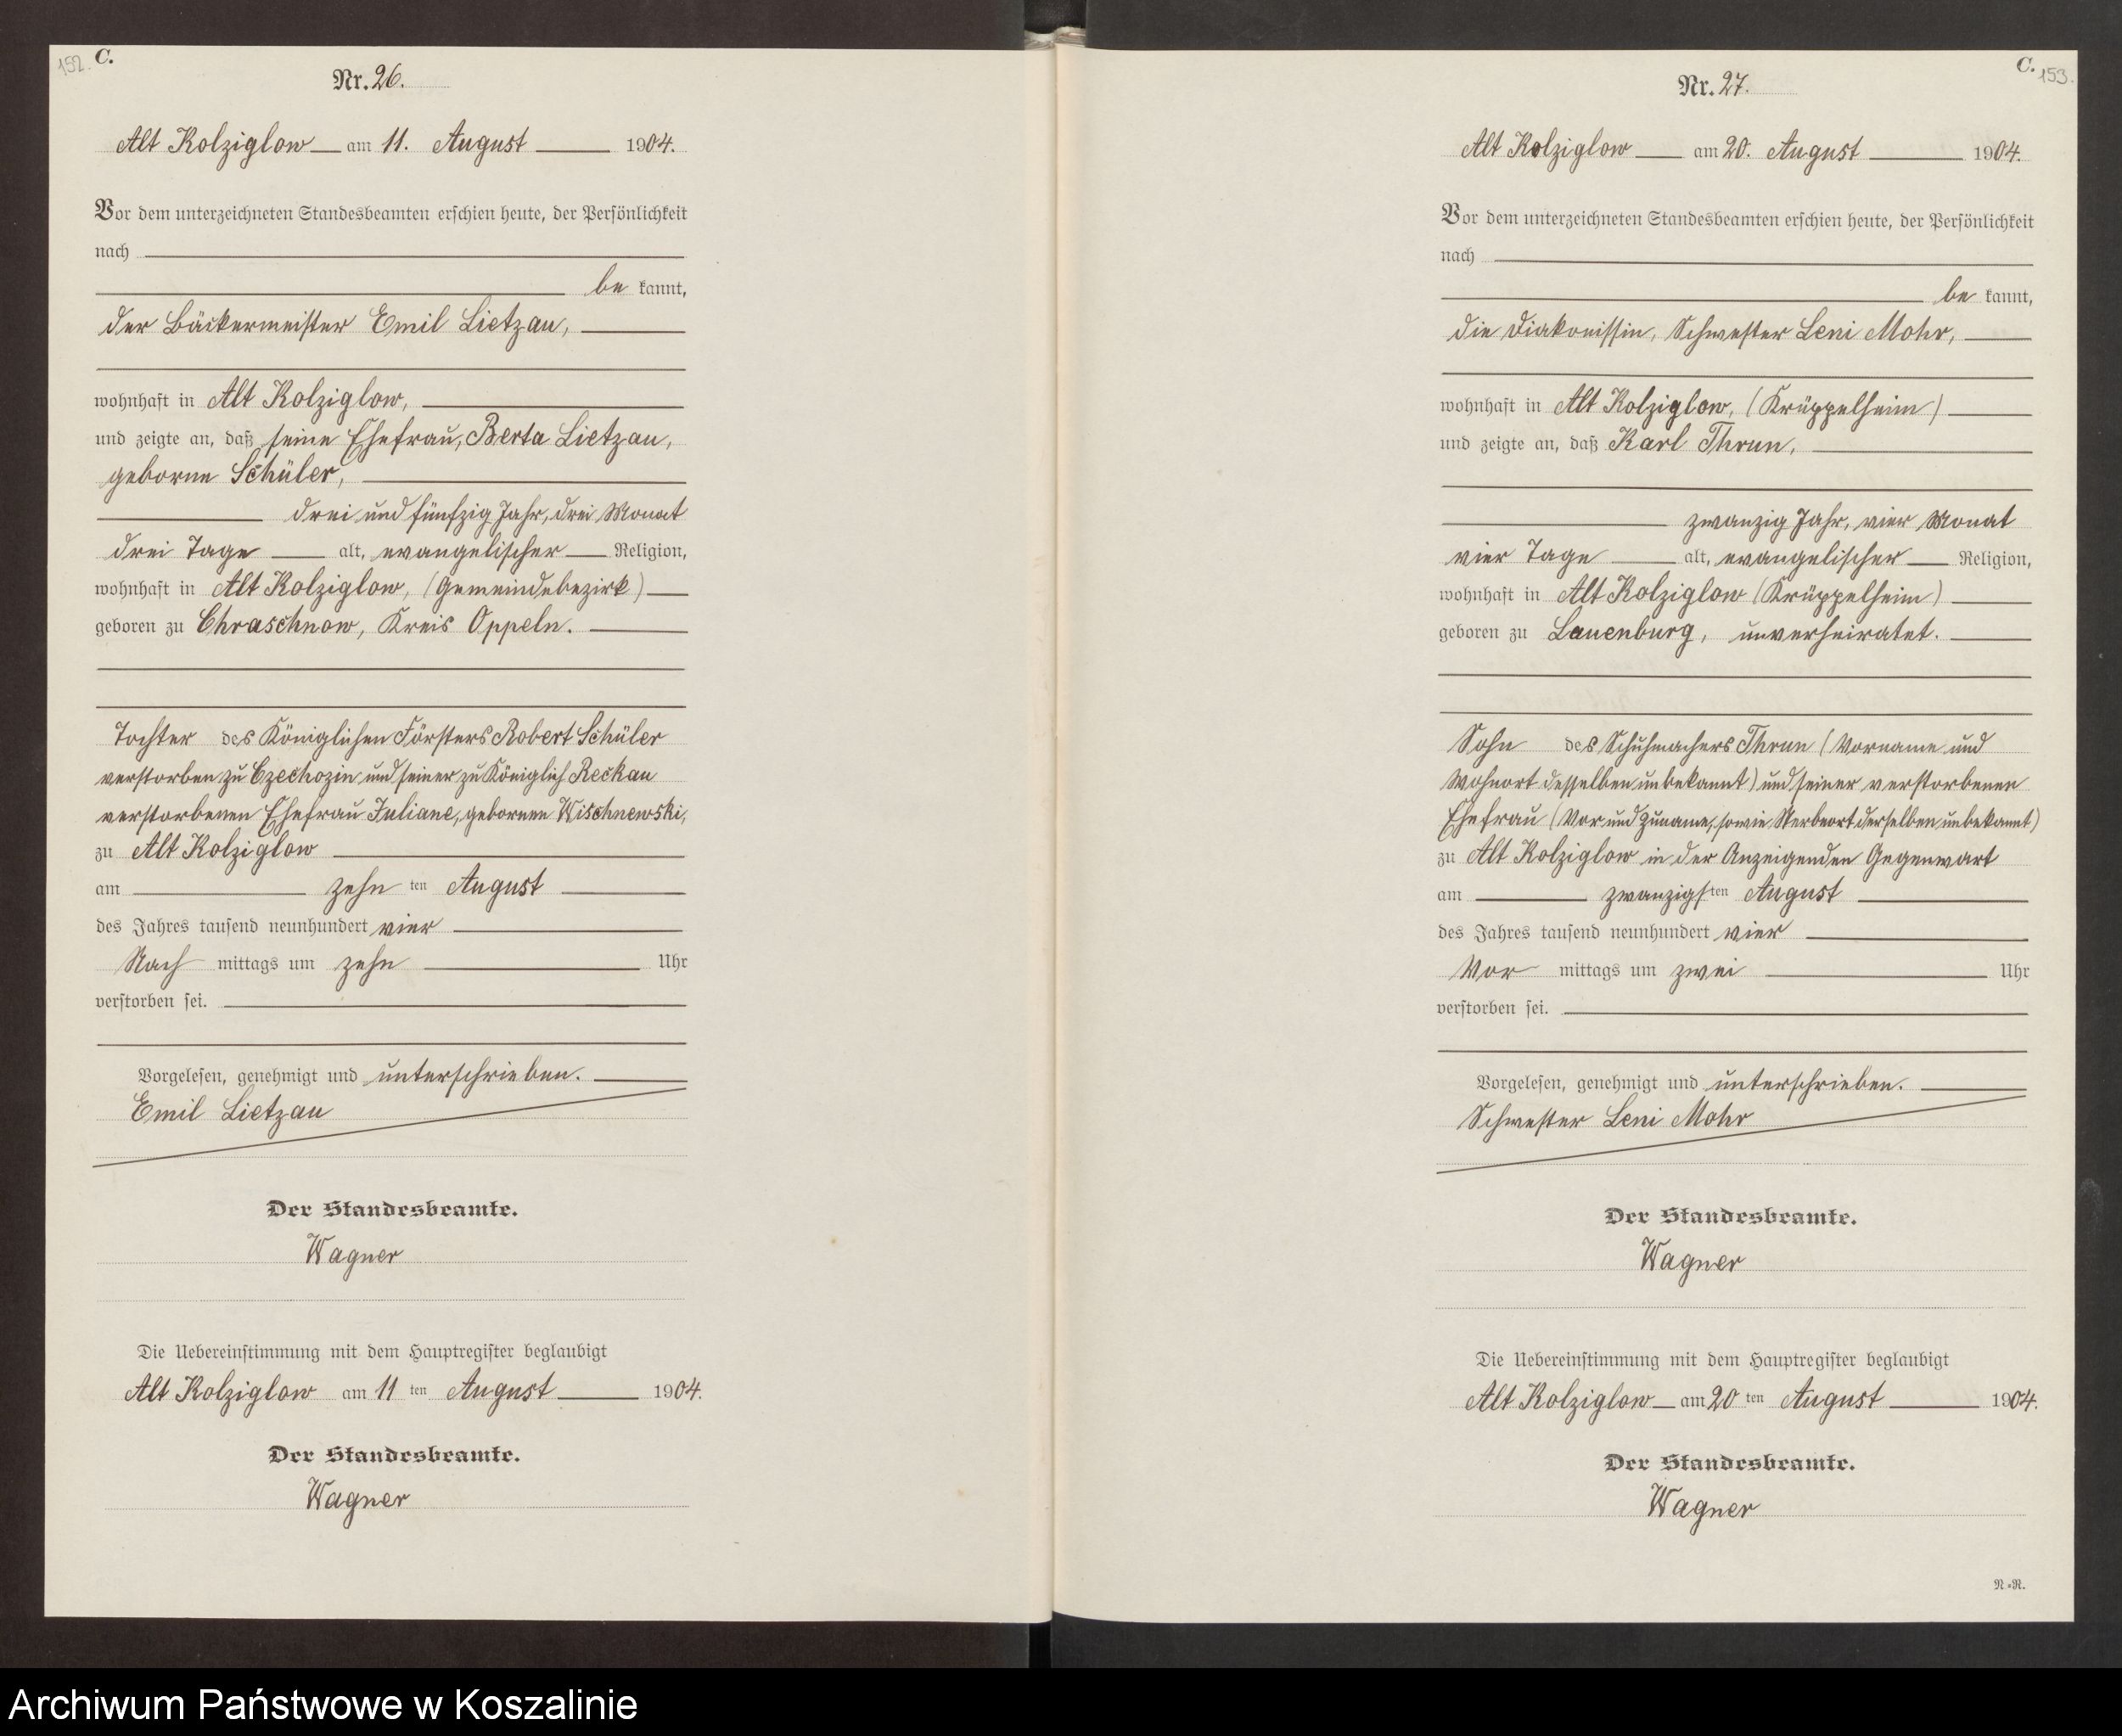 152. C.
Nr. 26.
Alt Kolziglow am 11. August 1904.
Vor dem unterzeichneten Standesbeamten erschien heute, der Persönlichkeit
nach
be kannt,
der Bäckermeister Emil Lietzau,
wohnhaft in Alt Kolziglow,
und zeigte an, daß seine Ehefrau, Berta Lietzau,
geborne Schüler,
drei und fünfzig Jahr, drei Monat
drei Tage alt, evangelischer Religion,
wohnhaft in Alt Kolziglow, (Gemeindebezirk)
geboren zu Chraschnow, Kreis Oppeln.
Tochter des Königlichen Försters Robert Schüler
verstorben zu Czechozin und seiner zu Königlich Reckau
verstorbenen Ehefrau Juliane, gebornen Wischnewski,
zu Alt Kolziglow
am zehn ten August
des Jahres tausend neunhundert vier
Nach mittags um zehn Uhr
verstorben sei.
Vorgelesen, genehmigt und unterschrieben.
Emil Lietzau
Der Standesbeamte.
Wagner
Die Uebereinstimmung mit dem Hauptregister beglaubigt
Alt Kolziglow am 11 ten August 1904.
Der Standesbeamte.
Wagner
C. 153.
Nr. 27.
Alt Kolziglow am 20. August 1904.
Vor dem unterzeichneten Standesbeamten erschien heute, der Persönlichkeit
nach
be kannt,
die Diakonissin, Schwester Leni Mohr,
wohnhaft in Alt Kolziglow, (Krüppelheim)
und zeigte an, daß Karl Thrun,
zwanzig Jahr, vier Monat
vier Tage alt, evangelischer Religion,
wohnhaft in Alt Kolziglow (Krüppelheim)
geboren zu Lauenburg, unverheiratet.
Sohn des Schuhmachers Thrun (Vorname und
Wohnort desselben unbekannt) und seiner verstorbenen
Ehefrau (Vor und Zuname, sowie Sterbeort derselben unbekannt)
zu Alt Kolziglow in der Anzeigenden Gegenwart
am zwanzigs ten August
des Jahres tausend neunhundert vier
Vor mittags um zwei Uhr
verstorben sei.
Vorgelesen, genehmigt und unterschrieben.
Schwester Leni Mohr
Der Standesbeamte.
Wagner
Die Uebereinstimmung mit dem Hauptregister beglaubigt
Alt Kolziglow am 20 ten August 1904.
Der Standesbeamte.
Wagner
N.=R.
Archiwum Państwowe w Koszalinie